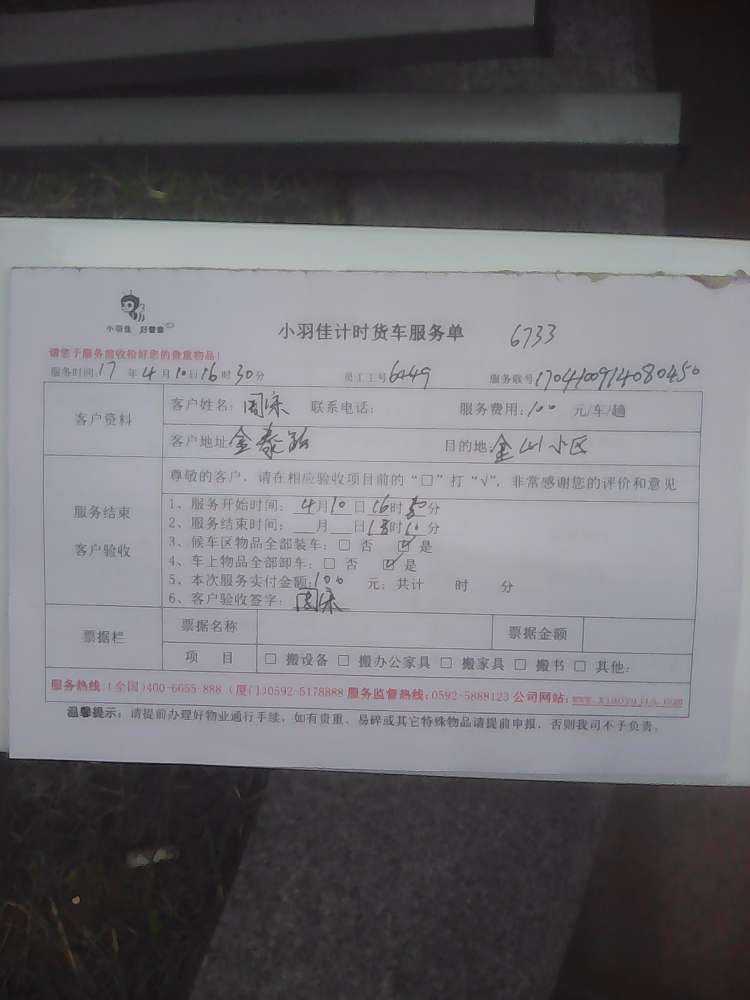 小羽佳 好管家
小羽佳计时货车服务单 6733
请您于服务前收检好您的贵重物品！
服务时间：17 年 4 月 10 日 16 时 30 分 员工工号 6449 服务账号 1704100914080450
客户资料
客户姓名： 联系电话： 服务费用：100 元/车/趟
客户地址 金泰 目的地 金山小区
服务结束
客户验收
尊敬的客户，请在相应验收项目前的“□”打“√”，非常感谢您的评价和意见
1、服务开始时间： 4月10日16时30分
2、服务结束时间： __月__日18时10分
3、候车区物品全部装车：□ 否 ☑ 是
4、车上物品全部卸车：□ 否 ☑ 是
5、本次服务实付金额：100 元；共计 时 分
6、客户验收签字：
票据栏
票据名称 票据金额
项 目 □ 搬设备 □ 搬办公家具 □ 搬家具 □ 搬书 □ 其他：
服务热线：(全国)400-6655-888 (厦门)0592-5178888 服务监督热线：0592-5888123 公司网站：www.xiaoyujia.com
温馨提示：请提前办理好物业通行手续，如有贵重、易碎或其它特殊物品请提前申报，否则我司不予负责。